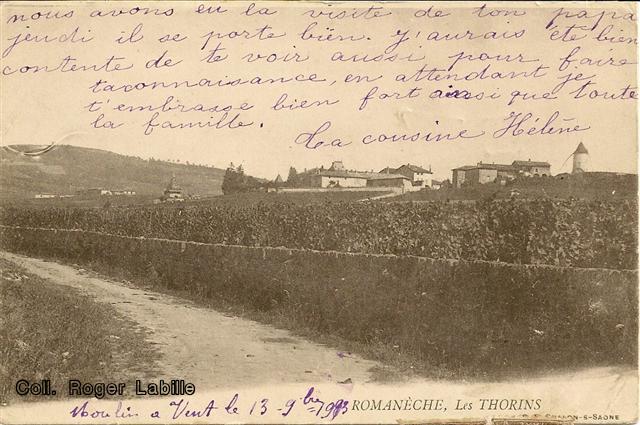 nous avons eu la visite de ton papa
jeudi il se porte bien. J'aurais été bien
contente de te voir aussi pour faire
ta connaissance, en attendant je
t'embrasse bien fort ainsi que toute
la famille.
Ta cousine Hélène
Coll. Roger Labille
Moulin à Vent le 13-9bre 1903
ROMANÈCHE, Les THORINS
CHALON-S-SAONE